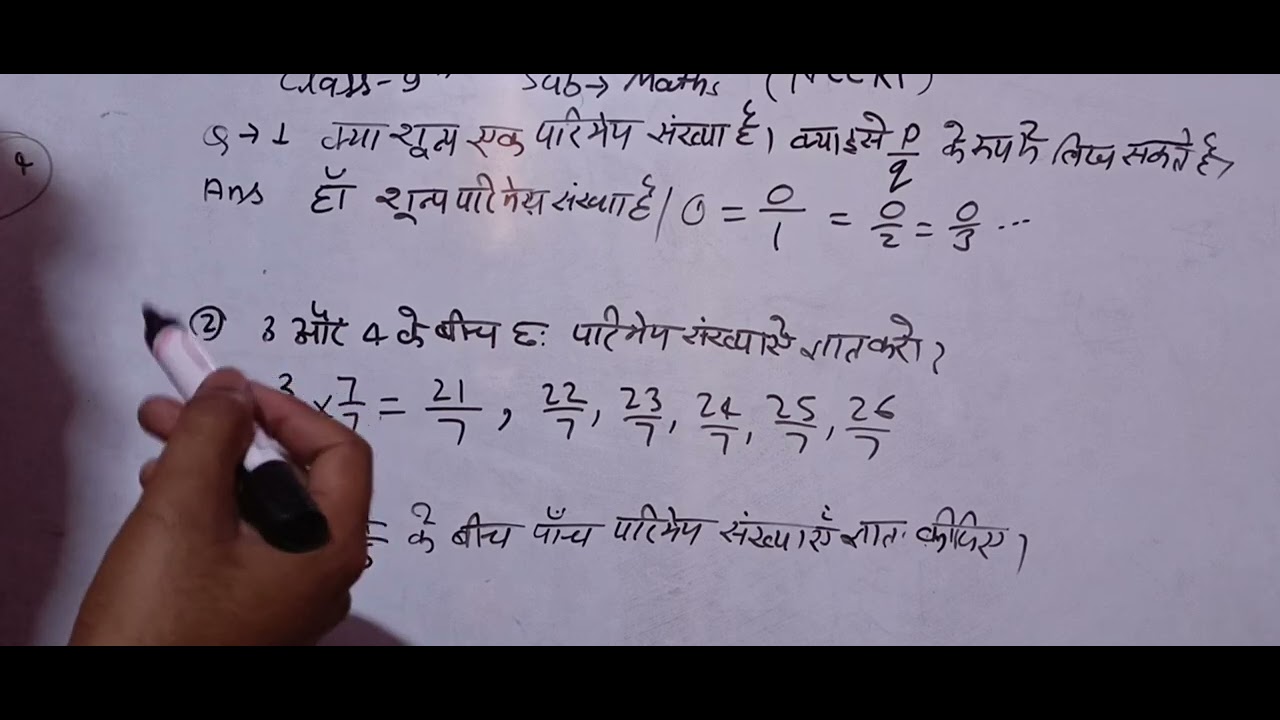 Class-9th Sub→Maths (NCERT)
Q→1 क्या शून्य एक परिमेय संख्या है। क्या इसे p/q के रूप में लिख सकते है,
Ans हाँ शून्य परिमेय संख्या है/ 0 = 0/1 = 0/2 = 0/3 ...
② 3 और 4 के बीच छः परिमेय संख्याएँ ज्ञात करो?
3 × 7/7 = 21/7, 22/7, 23/7, 24/7, 25/7, 26/7
के बीच पाँच परिमेय संख्याएँ ज्ञात कीजिए।